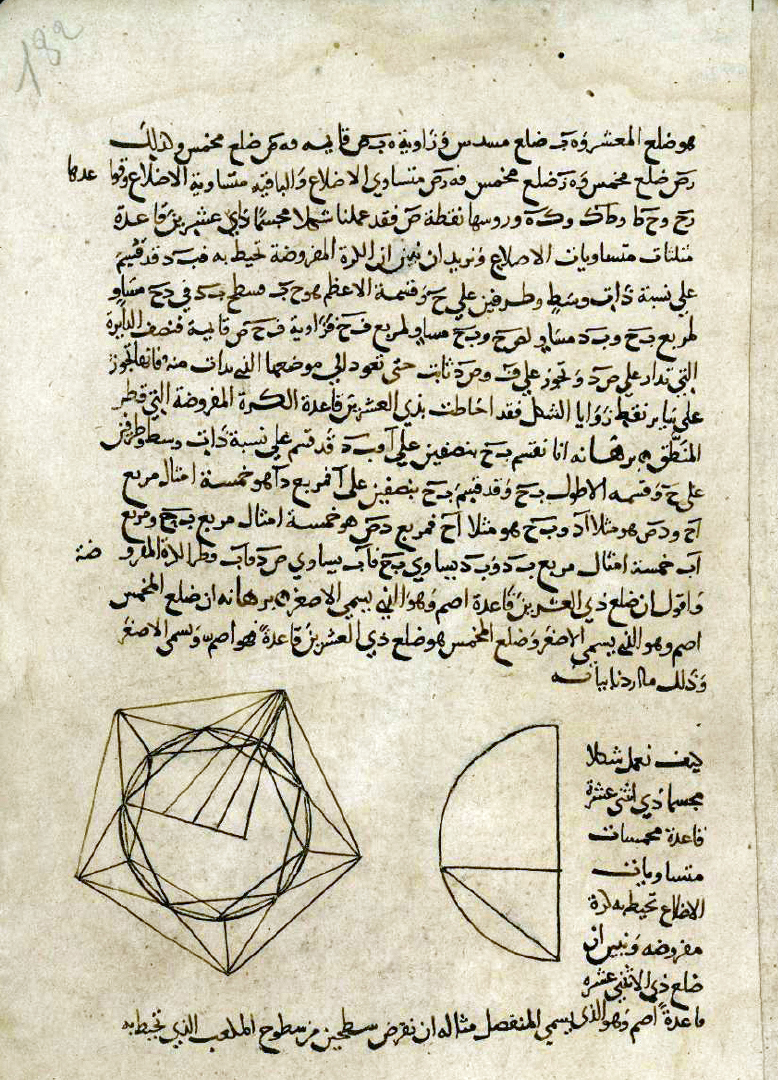 182
هو ضلع المعشر وه ب ضلع مسدس وزاوية ه ب ص قايمه فه ص ضلع مخمس وكذلك
رص ضلع مخمس وه ر ضلع مخمس فه رص متساوي الاضلاع والباقيه متساوية الاضلاع وقواعدها
رح وح ط وط ك وك ه وروسها نقطة ص فقد عملنا شكلا مجسما ذي عشرين قاعدة
مثلثات متساويات الاضلاع ونريد ان نبين ان الكرة المفروضة تحيط به فب د قد قسم
علي نسبة ذات وسط وطرفين علي ح وقسمه الاعظم هو ح ب فسطح ب د في د ح مساو
لمربع ب ح وب د مساو وب ح مساو لمربع ف ح فزاوية ف ح ص قايمة فنصف الدايرة
التي تدار علي ص د وتجوز علي ف وص د ثابت حتى تعود الي موضعها الذي بدات منه فانها تجوز
علي ساير نقط زوايا الشكل فقد احاطت بذي العشرين قاعدة الكرة المفروضة التي قطر
المنطق برهانه انا نقسم ب ح بنصفين علي آ وب د قد قسم علي نسبة ذات وسط وطرفين
على ح وقسمه الاطول ب ح وقد قسم ب ح بنصفين على آ فمربع د آ هو خمسة امثال مربع
آح ود ص هو مثلا آد وب ح هو مثلا آح فمربع د ص هو خمسة امثال مربع ب ح ومربع
آب خمسة امثال مربع ب د وب د يساوي ب ح فآب يساوي ص د وآب قطر الكرة المفروضة
واقول ان ضلع ذي العشرين قاعدة اصم وهو الذي يسمي الاصغر برهانه ان ضلع المخمس
اصم وهو الذي يسمي الاصغر وضلع المخمس هو ضلع ذي العشرين قاعدة فهو اصم ويسمى الاصغر
وذلك ما اردنا بيانه
كيف نعمل شكلا
مجسما ذي اثني عشرة
قاعدة مخمسات
متساويات
الاضلاع تحيط به كرة
مفروضه ونبين ان
ضلع ذي الاثني عشره
قاعدة اصم وهو الذي يسمي المنفصل مثاله ان نفرض سطحين من سطوح المكعب الذي تحيط به